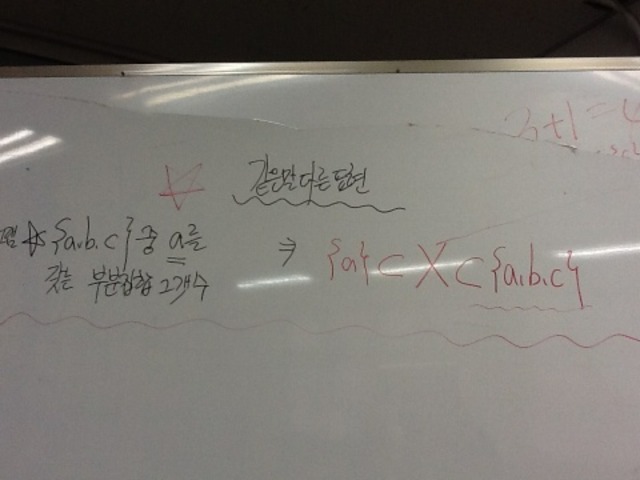 3+1=
같은말 다른 표현
☆ {a,b,c} 중 a를
갖는 부분집합 그 개수
⇒ {a}⊂X⊂{a,b,c}